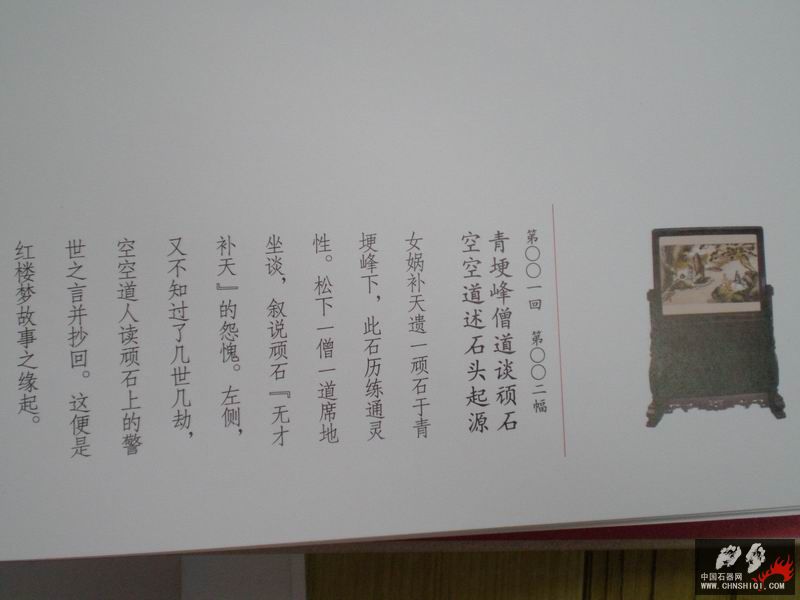 第〇〇一回 第〇〇二幅
青埂峰僧道谈顽石
空空道述石头起源
女娲补天遗一顽石于青
埂峰下，此石历练通灵
性。松下一僧一道席地
坐谈，叙说顽石『无才
补天』的怨愧。左侧，
又不知过了几世几劫，
空空道人读顽石上的警
世之言并抄回。这便是
红楼梦故事之缘起。
中国石器网
WWW.CHNSHIQI.COM